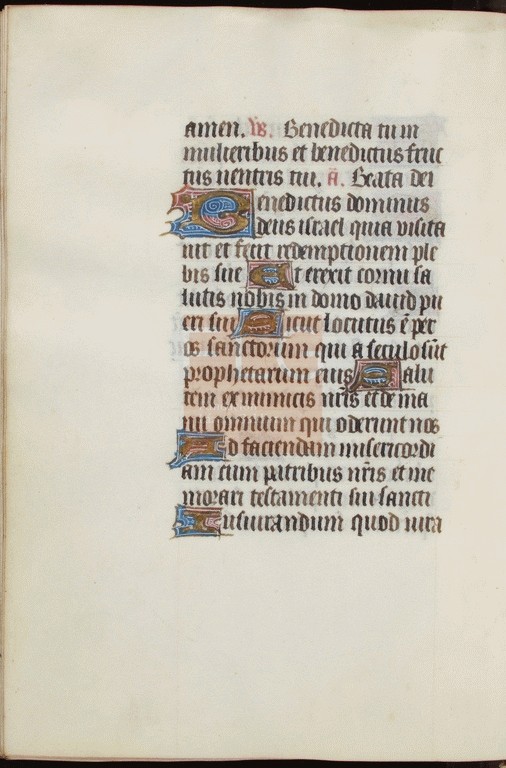 amen. vs. Benedicta tu in
mulieribus et benedictus fruc
tus uentris tui. a. Beata dei
Benedictus dominus
deus israel quia visita
uit et fecit redemptionem ple
bis sue Et erexit cornu sa
lutis nobis in domo dauid pu
eri sui Sicut locutus ē per
os sanctorum qui a seculo sūt
prophetarum eius Salu
tem ex inimicis nr̄is et de ma
nu omnium qui oderunt nos
Ad faciendam misericordi
am cum patribus nr̄is et me
morari testamenti sui sancti
Iusiurandum quod iura